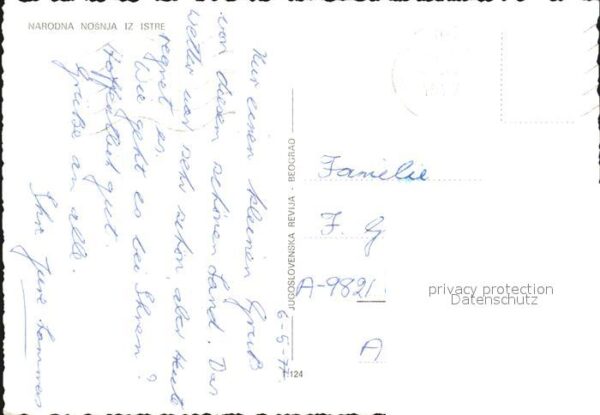 NARODNA NOŠNJA IZ ISTRE
Nur einen kleinen Gruß
von diesem schönen Land. Das
Wetter war sehr schön, aber heute
regnet es.
Wie geht es bei Ihnen?
Hoffentlich gut.
Grüße an alle.
Ihr
JUGOSLOVENSKA REVIJA - BEOGRAD
T.124
Familie
F. G
A-9821
A
privacy protection
Datenschutz